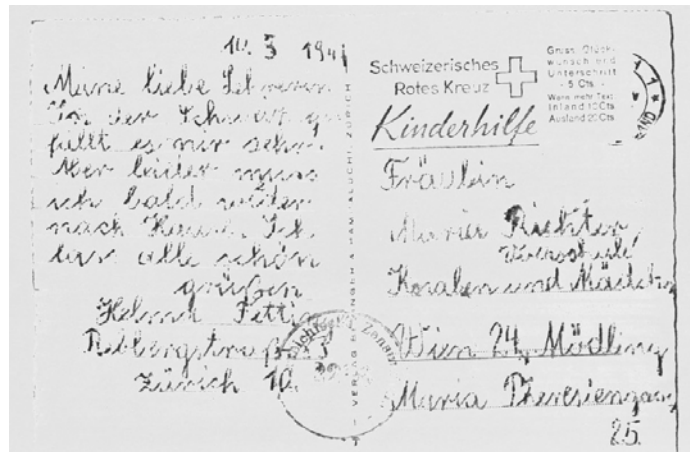 10. 3 1941
Meine liebe Lehrerin
In der Schweiz ge
fällt es mir sehr.
Aber leider muss
ich bald wieder
nach Hause. Ich
lass alle schön
grüßen
Helmut
Zürich 10.
VERLAG
ZÜRICH
Schweizerisches
Rotes Kreuz
Kinderhilfe
Gruss, Glück-
wunsch und
Unterschrift
- 5 Cts. -
Wenn mehr Text:
Inland 10 Cts
Ausland 20 Cts
Fräulein
Maria Richter
Volksschule
Knaben und Mädchen
Wien 24, Mödling
Maria Theresiengasse
25.